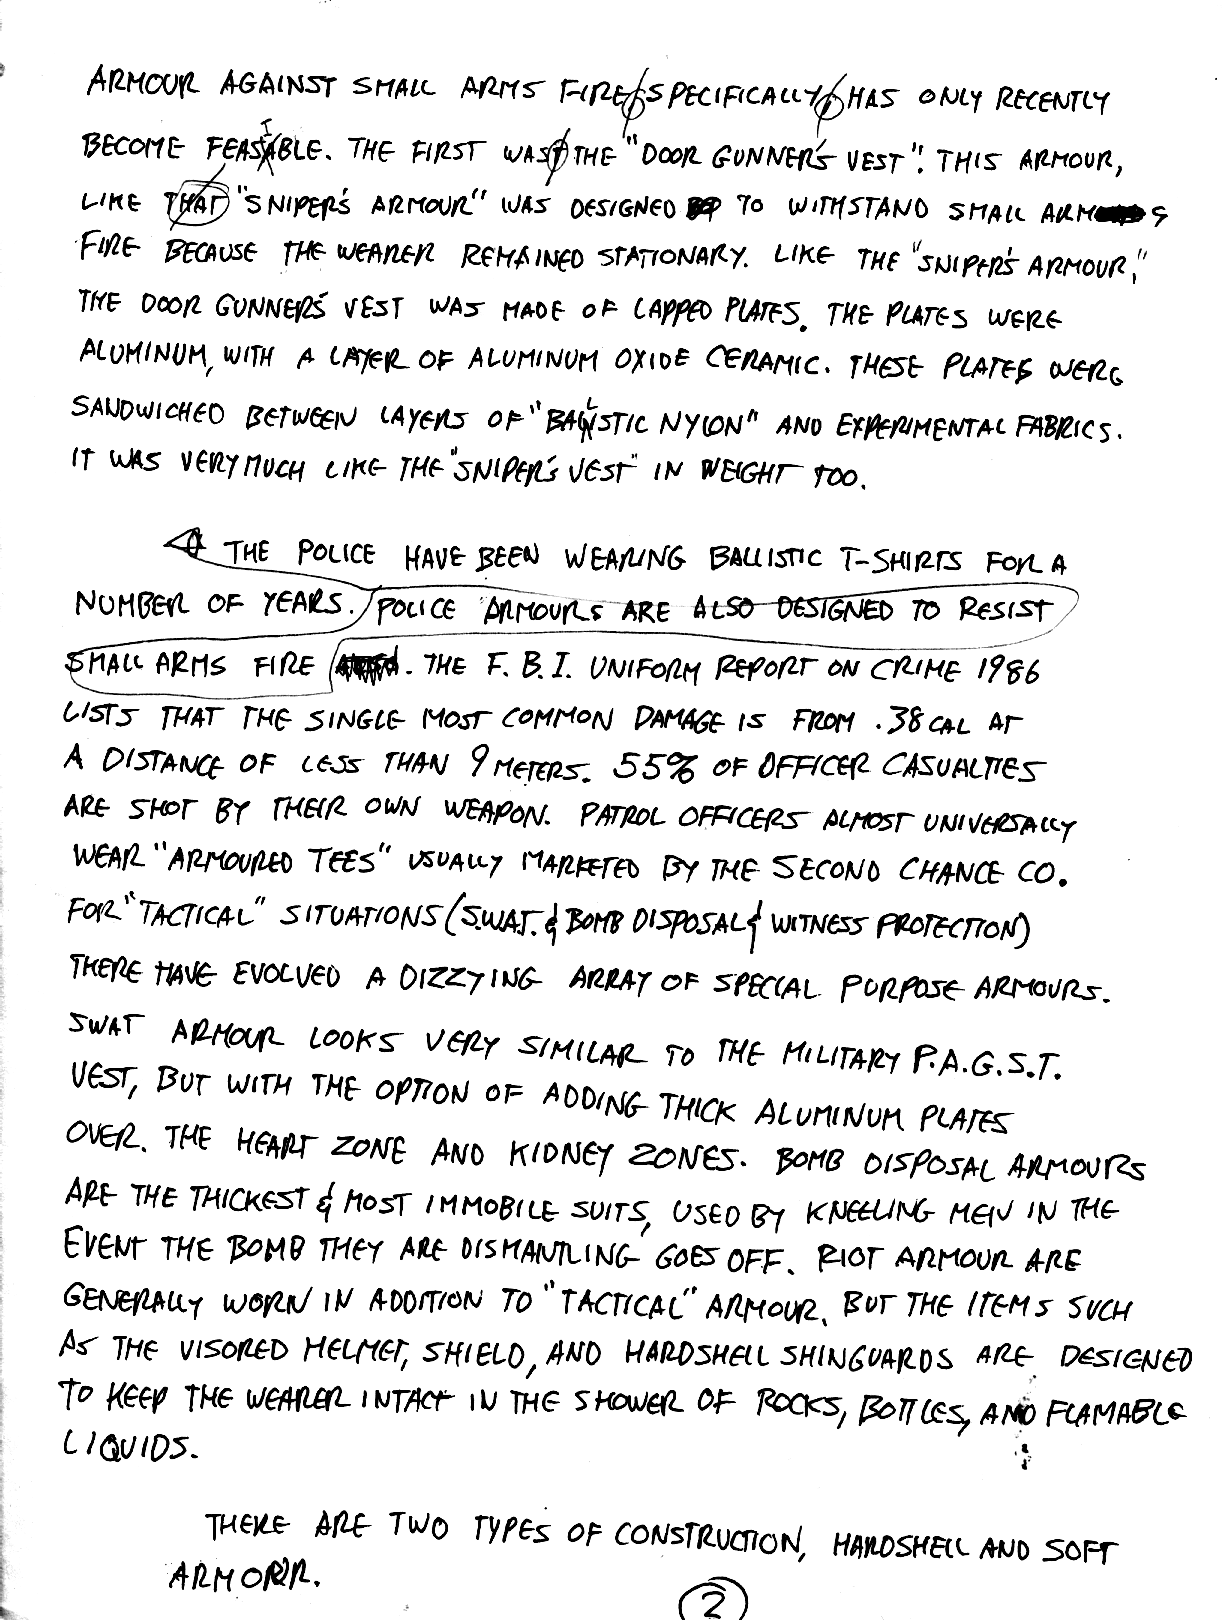 ARMOUR AGAINST SMALL ARMS FIRE, SPECIFICALLY, HAS ONLY RECENTLY
BECOME FEASIBLE. THE FIRST WAS THE "DOOR GUNNER'S VEST". THIS ARMOUR,
LIKE THAT "SNIPER'S ARMOUR" WAS DESIGNED TO WITHSTAND SMALL ARMS
FIRE BECAUSE THE WEARER REMAINED STATIONARY. LIKE THE "SNIPER'S ARMOUR,"
THE DOOR GUNNER'S VEST WAS MADE OF LAPPED PLATES. THE PLATES WERE
ALUMINUM, WITH A LAYER OF ALUMINUM OXIDE CERAMIC. THESE PLATES WERE
SANDWICHED BETWEEN LAYERS OF "BALLISTIC NYLON" AND EXPERIMENTAL FABRICS.
IT WAS VERY MUCH LIKE THE "SNIPER'S VEST" IN WEIGHT TOO.
THE POLICE HAVE BEEN WEARING BALLISTIC T-SHIRTS FOR A
NUMBER OF YEARS. POLICE ARMOURS ARE ALSO DESIGNED TO RESIST
SMALL ARMS FIRE. THE F.B.I. UNIFORM REPORT ON CRIME 1986
LISTS THAT THE SINGLE MOST COMMON DAMAGE IS FROM .38 CAL AT
A DISTANCE OF LESS THAN 9 METERS. 55% OF OFFICER CASUALTIES
ARE SHOT BY THEIR OWN WEAPON. PATROL OFFICERS ALMOST UNIVERSALLY
WEAR "ARMOURED TEES" USUALLY MARKETED BY THE SECOND CHANCE CO.
FOR "TACTICAL" SITUATIONS (S.W.A.T. & BOMB DISPOSAL & WITNESS PROTECTION)
THERE HAVE EVOLVED A DIZZYING ARRAY OF SPECIAL PURPOSE ARMOURS.
SWAT ARMOUR LOOKS VERY SIMILAR TO THE MILITARY P.A.G.S.T.
VEST, BUT WITH THE OPTION OF ADDING THICK ALUMINUM PLATES
OVER. THE HEART ZONE AND KIDNEY ZONES. BOMB DISPOSAL ARMOURS
ARE THE THICKEST & MOST IMMOBILE SUITS, USED BY KNEELING MEN IN THE
EVENT THE BOMB THEY ARE DISMANTLING GOES OFF. RIOT ARMOUR ARE
GENERALLY WORN IN ADDITION TO "TACTICAL" ARMOUR. BUT THE ITEMS SUCH
AS THE VISORED HELMET, SHIELD, AND HARDSHELL SHINGUARDS ARE DESIGNED
TO KEEP THE WEARER INTACT IN THE SHOWER OF ROCKS, BOTTLES, AND FLAMABLE
LIQUIDS.
THERE ARE TWO TYPES OF CONSTRUCTION, HARDSHELL AND SOFT
ARMOR.
2